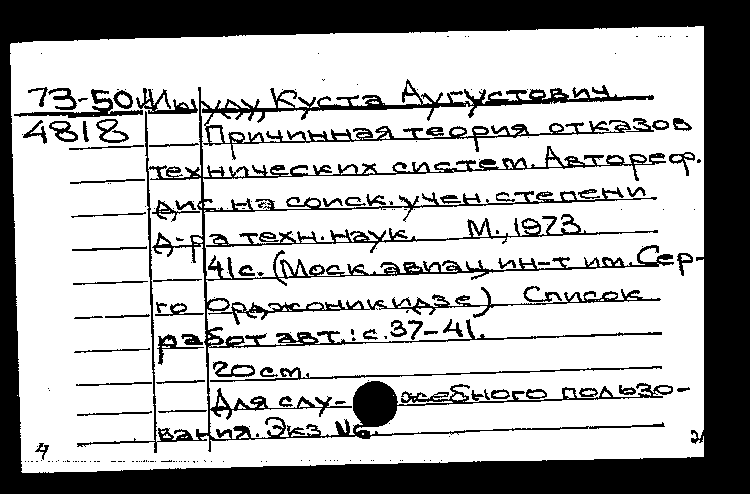 73-50 Иыуду, Куста Аугустович.
4818 Причинная теория отказов
технических систем. Автореф.
дис. на соиск. учен. степени
д-ра техн. наук. М., 1973.
41 с. (Моск. авиац. ин-т им. Сер-
го Орджоникидзе) Список
работ авт.: с. 37-41.
20 см.
Для слу- жебного пользо-
вания. Экз. №
4